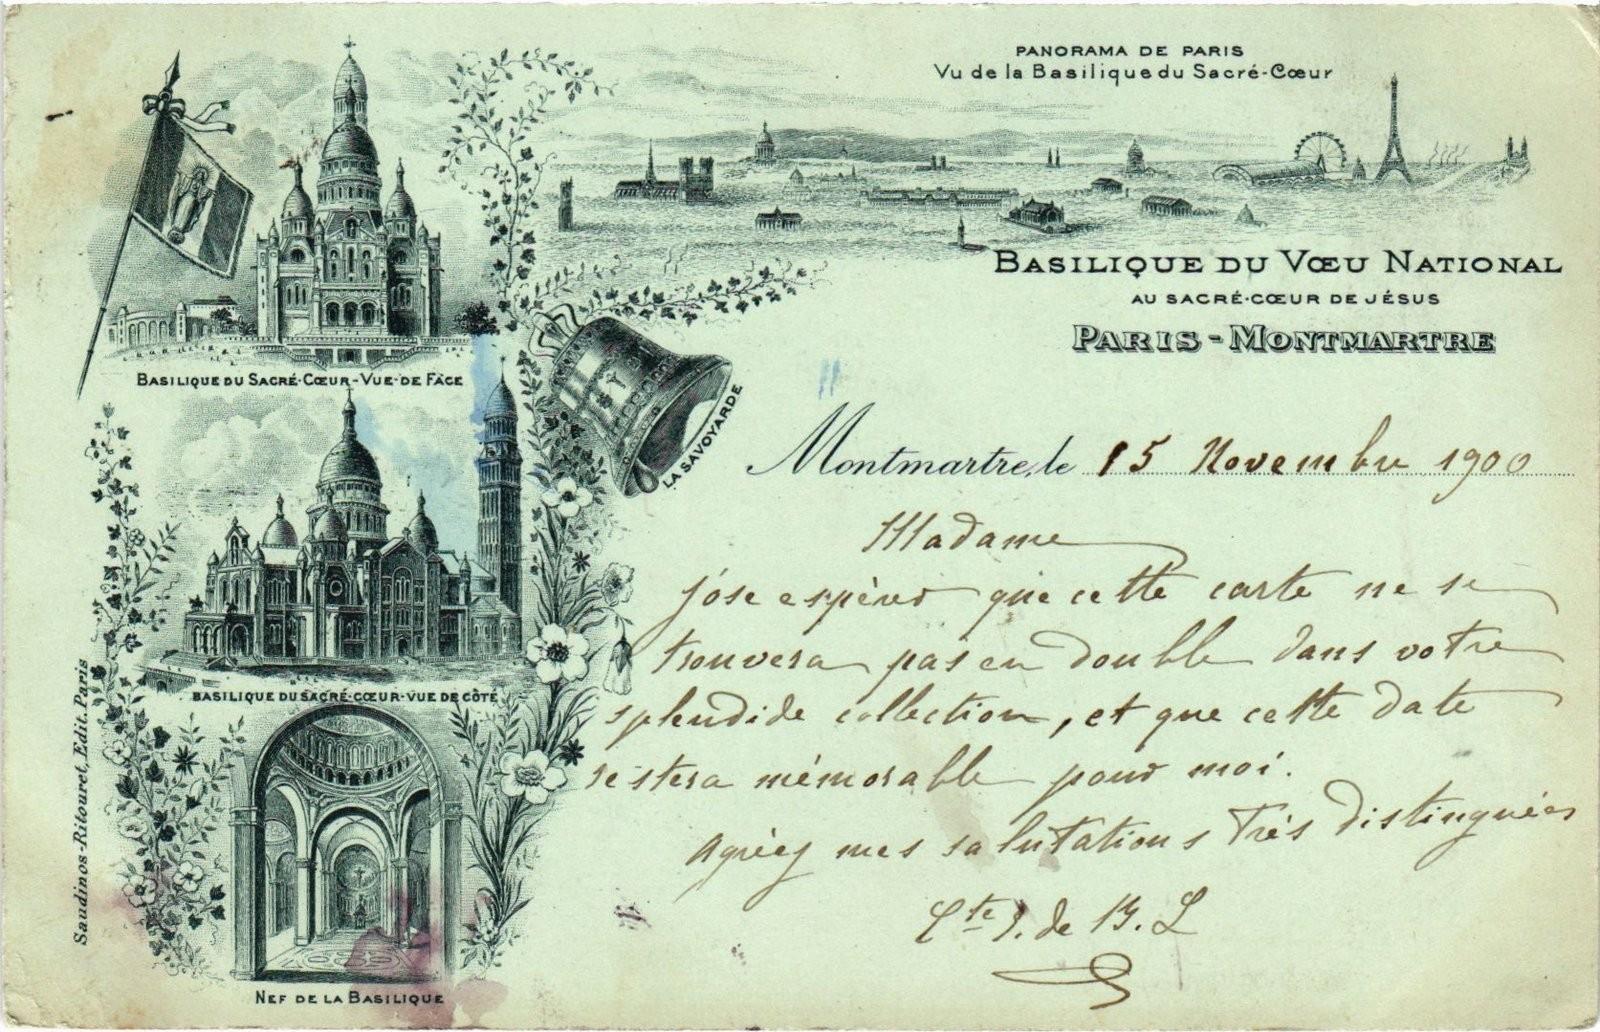 PANORAMA DE PARIS
Vu de la Basilique du Sacré-Cœur
BASILIQUE DU VŒU NATIONAL
AU SACRÉ-CŒUR DE JÉSUS
PARIS-MONTMARTRE
BASILIQUE DU SACRÉ-CŒUR-VUE-DE FACE
LA SAVOYARDE
Montmartre, le 15 Novembre 1900
Madame
j'ose espérer que cette carte ne se
trouvera pas en double dans votre
splendide collection, et que cette date
restera mémorable pour moi.
Agréez mes salutations très distinguées
Cte J. de B. L
BASILIQUE DU SACRÉ-CŒUR-VUE DE CÔTÉ
NEF DE LA BASILIQUE
Saudinos-Ritouret, Edit. Paris